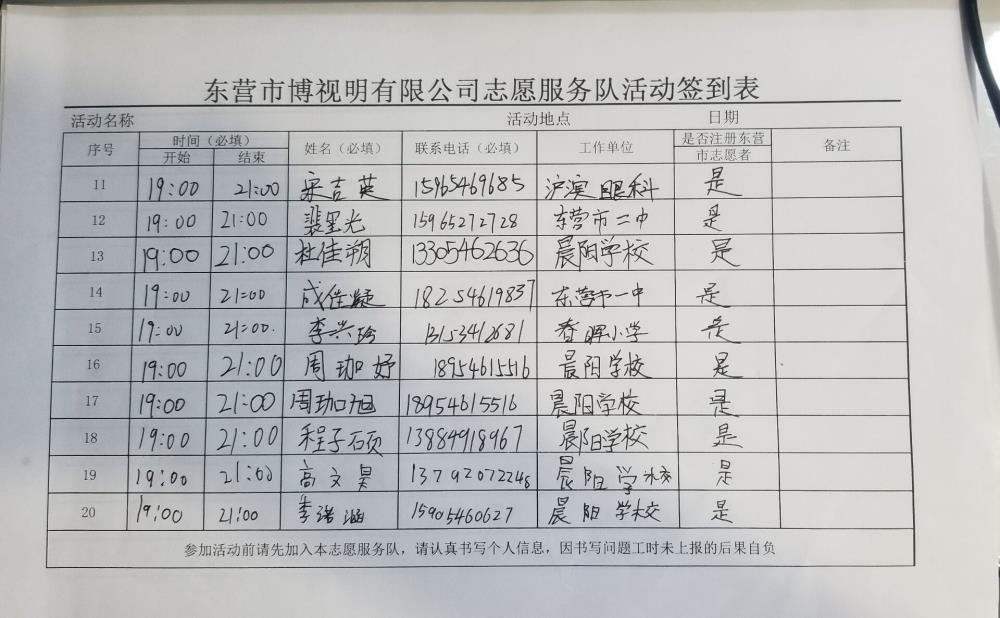 东营市博视明有限公司志愿服务队活动签到表
活动名称 活动地点 日期
序号 时间（必填） 姓名（必填） 联系电话（必填） 工作单位 是否注册东营市志愿者 备注
开始 结束
11 19:00 21:00 宋吉英 15965469685 沪滨眼科 是
12 19:00 21:00 裴星光 15965272728 东营市二中 是
13 19:00 21:00 杜佳朔 13305462636 晨阳学校 是
14 19:00 21:00 成佳凝 18254619837 东营市一中 是
15 19:00 21:00. 李兴玲 13153412681 春晖小学 是
16 19:00 21:00 周珈妤 18954615516 晨阳学校 是
17 19:00 21:00 周珈旭 18954615516 晨阳学校 是
18 19:00 21:00 程子硕 13884918967 晨阳学校 是
19 19:00 21:00 高文昊 13792072248 晨阳学校 是
20 19:00 21:00 李诺涵 15905460627 晨阳学校 是
参加活动前请先加入本志愿服务队，请认真书写个人信息，因书写问题工时未上报的后果自负